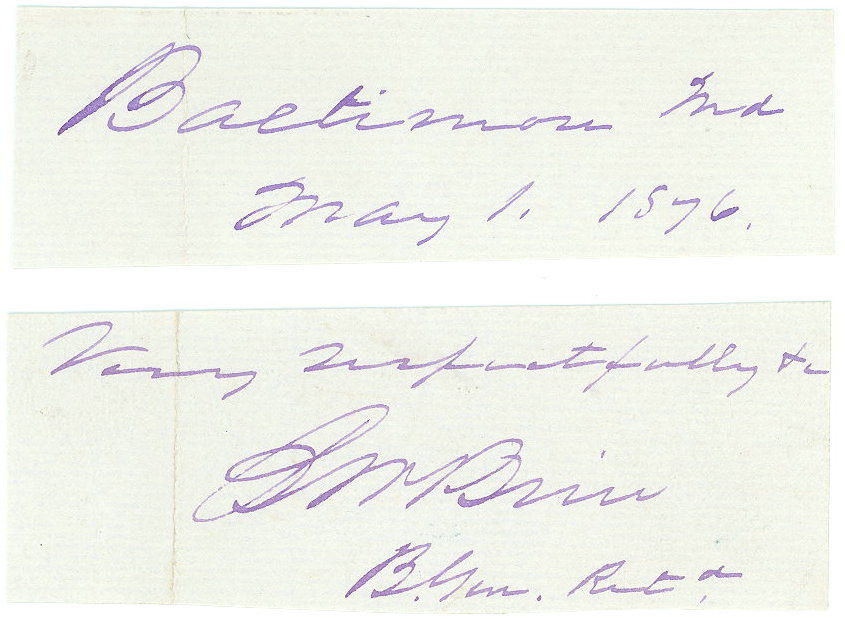 Baltimore Md
May 1. 1876.
Very respectfully &c
B W Brice
B. Gen. Ret d.